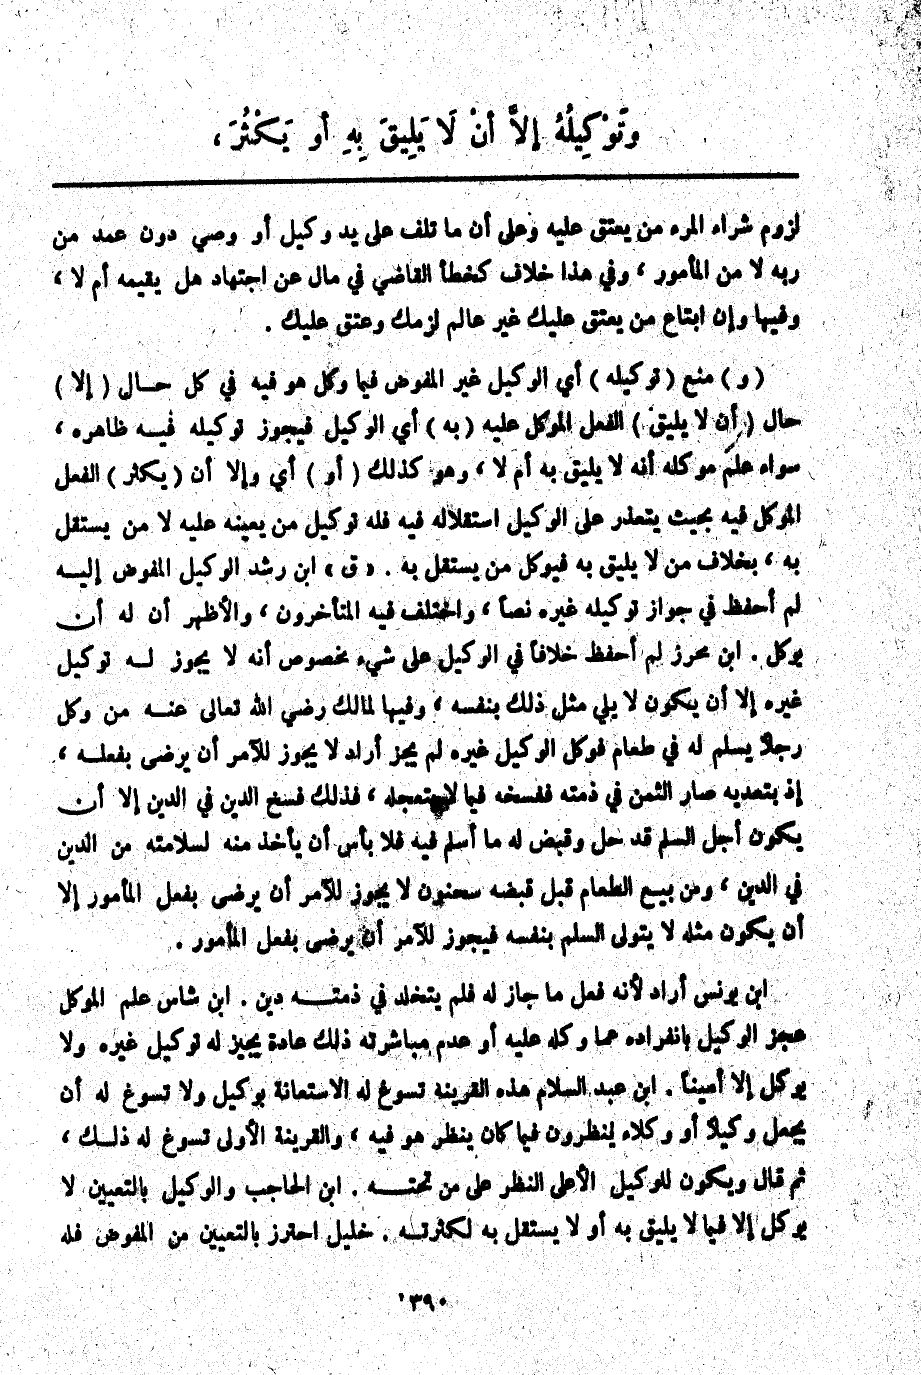 وَتَوْكِيلُهُ إلاَّ أنْ لَا يَلِيقَ بِهِ أو يَكْثُرَ ،
لزوم شراء المرء من يعتق عليه وعلى أن ما تلف على يد وكيل أو وصي دون عمد من
ربه لا من المأمور ، وفي هذا خلاف كخطأ القاضي في مال عن اجتهاد هل يقيمه أم لا ،
وفيها وإن ابتاع من يعتق عليك غير عالم لزمك وعتق عليك .
( و ) منع ( توكيله ) أي الوكيل غير المفوض فيما وكل هو فيه في كل حـال ( إلا )
حال ( أن لا يليق ) الفعل الموكل عليه ( به ) أي الوكيل فيجوز توكيله فيـه ظاهره ،
سواء علم موكله أنه لا يليق به أم لا ، وهو كذلك ( أو ) أي وإلا أن ( يكثر ) الفعل
الموكل فيه بحيث يتعذر على الوكيل استقلاله فيه فله توكيل من يعينه عليه لا من يستقل
به ، بخلاف من لا يليق به فيوكل من يستقل به . « ق » ابن رشد الوكيل المفوض إليـه
لم أحفظ في جواز توكيله غيره نصاً ، واختلف فيه المتأخرون ، والأظهر أن له أن
يوكل . ابن محرز لم أحفظ خلافاً في الوكيل على شيء مخصوص أنه لا يجوز لـه توكيل
غيره إلا أن يكون لا يلي مثل ذلك بنفسه ، وفيها لمالك رضي الله تعالى عنـه من وكل
رجلاً يسلم له في طعام فوكل الوكيل غيره لم يجز أراد لا يجوز للآمر أن يرضى بفعلـه ،
إذ بتعديه صار الثمن في ذمته ففسخه فيما لا يتعجله ، فذلك فسخ الدين في الدين إلا أن
يكون أجل السلم قد حل وقبض له ما أسلم فيه فلا بأس أن يأخذ منه لسلامته من الدين
في الدين ، ومن بيـع الطعام قبل قبضه سحنون لا يجوز للآمر أن يرضى بفعل المأمور إلا
أن يكون مثله لا يتولى السلم بنفسه فيجوز للآمر أن يرضى بفعل المأمور .
ابن يونس أراد لأنه فعل ما جاز له فلم يتخلد في ذمتـه دين . ابن شاس علم الموكل
عجز الوكيل بانفراده عما وكله عليه أو عدم مباشرته ذلك عادة يجيز له توكيل غيره ولا
يوكل إلا أميناً . ابن عبد السلام هذه القرينة تسوغ له الاستعانة بوكيل ولا تسوغ له أن
يجعل وكيلاً أو وكلاء ينظرون فيما كان ينظر هو فيه ، والقرينة الأولى تسوغ له ذلـك ،
ثم قال ويكون للوكيل الأعلى النظر على من تحتـه . ابن الحاجب والوكيل بالتعيين لا
يوكل إلا فيما لا يليق به أو لا يستقل به لكثرتـه . خليل احترز بالتعيين من المفوض فله
٣٩٠